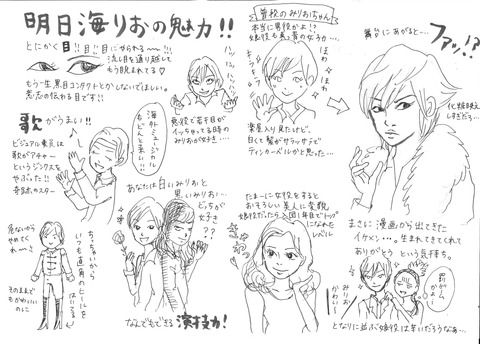 明日海りおの魅力!!
とにかく目!!目!!目にやられる〜!!!
流し目を通り越して
もう睨まれてる♡
もう一生黒目コンタクトとかしないでほしい。
意志の伝わる目です!!
歌がうまい!!
ビジュアル要員は
歌がアチャー
というジンクスを
やぶった!!
奇跡のスター
海外ミュージカル
もどんと来い!!
悪役で若干目が
イッちゃってる時の
みりおが好き…
あなたは白いみりおと
黒いみりお…
どっちが
お好き
??
危ないから
やめてく
れ〜さ
そのままで
もかわいい
のに
ちっちゃいから
いつも直角のヒールを
はいてる
なんでもできる演技力!
普段のみりおちゃん
本当に男役かよ!?
ほわ
ほわ
キラキラ
楽屋入り見たけど、
白くて髪がサラッサラで
ティンカーベルかと思った…
たまーに女役をすると
おそろしい美人に変貌
娘役だったら入団1年でトップ
になれた
レベル
舞台にあがると…
ファッ!?
化粧映え
しすぎだろ…
まさに漫画から出てきた
イケメン…。生まれてきてくれて
ありがとう という気持ち。
罰ゲーム
かよ…
みりお
かわいい〜
となりに並ぶ娘役は辛いだろうなぁ…